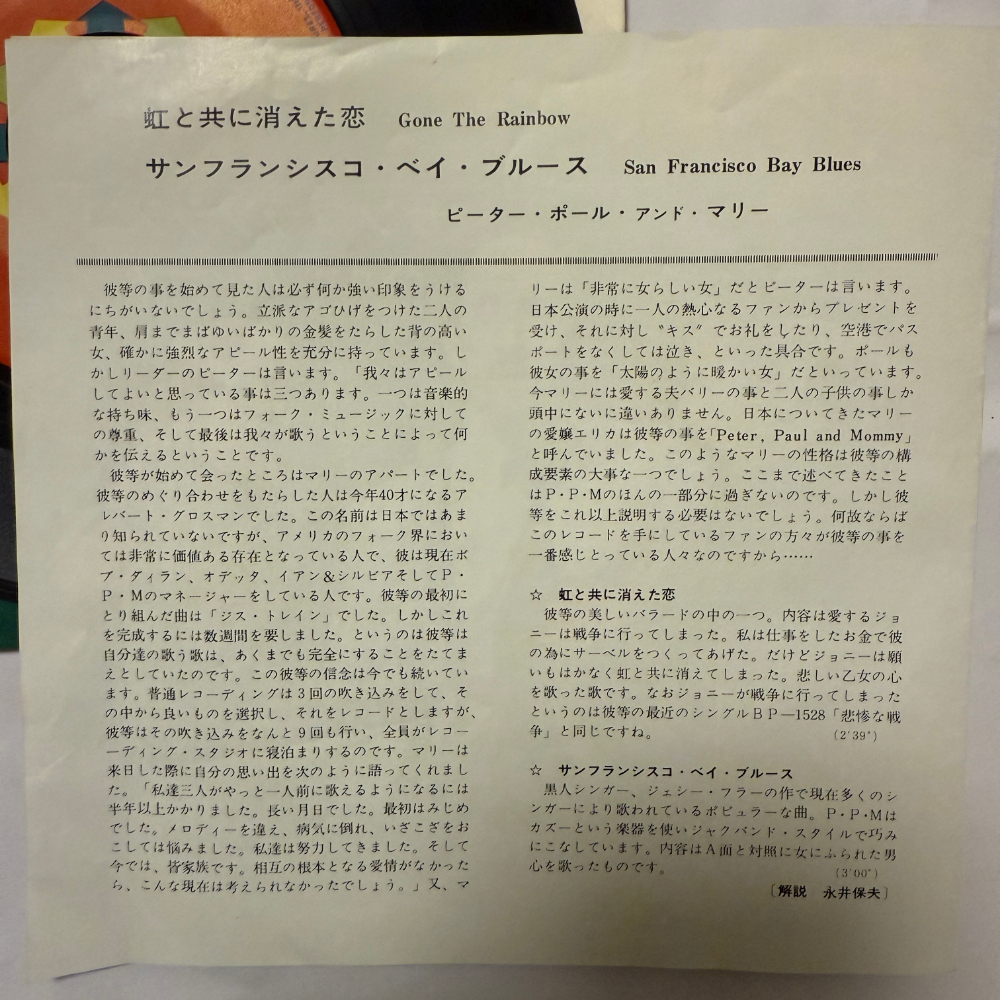 虹と共に消えた恋　Gone The Rainbow
サンフランシスコ・ベイ・ブルース　San Francisco Bay Blues
ピーター・ポール・アンド・マリー
彼等の事を始めて見た人は必ず何か強い印象をうける
にちがいないでしょう。立派なアゴひげをつけた二人の
青年、肩までまばゆいばかりの金髪をたらした背の高い
女、確かに強烈なアピール性を充分に持っています。し
かしリーダーのピーターは言います。「我々はアピール
してよいと思っている事は三つあります。一つは音楽的
な持ち味、もう一つはフォーク・ミュージックに対して
の尊重、そして最後は我々が歌うということによって何
かを伝えるということです。
彼等が始めて会ったところはマリーのアパートでした。
彼等のめぐり合わせをもたらした人は今年40才になるア
ルバート・グロスマンでした。この名前は日本ではあま
り知られていないですが、アメリカのフォーク界におい
ては非常に価値ある存在となっている人で、彼は現在ボ
ブ・ディラン、オデッタ、イアン&シルビアそしてP・
P・Mのマネージャーをしている人です。彼等の最初に
とり組んだ曲は「ジス・トレイン」でした。しかしこれ
を完成するには数週間を要しました。というのは彼等は
自分達の歌う歌は、あくまでも完全にすることをたてま
えとしていたのです。この彼等の信念は今でも続いてい
ます。普通レコーディングは3回の吹き込みをして、そ
の中から良いものを選択し、それをレコードとしますが、
彼等はその吹き込みをなんと9回も行い、全員がレコー
ーディング・スタジオに寝泊まりするのです。マリーは
来日した際に自分の思い出を次のように語ってくれまし
た。「私達三人がやっと一人前に歌えるようになるには
半年以上かかりました。長い月日でした。最初はみじめ
でした。メロディーを違え、病気に倒れ、いざこざをお
こしては悩みました。私達は努力してきました。そして
今では、皆家族です。相互の根本となる愛情がなかった
ら、こんな現在は考えられなかったでしょう。」又、マ
リーは「非常に女らしい女」だとピーターは言います。
日本公演の時に一人の熱心なるファンからプレゼントを
受け、それに対し〝キス〟でお礼をしたり、空港でパス
ポートをなくしては泣き、といった具合です。ポールも
彼女の事を「太陽のように暖かい女」だといっています。
今マリーには愛する夫バリーの事と二人の子供の事しか
頭中にないに違いありません。日本についてきたマリー
の愛嬢エリカは彼等の事を「Peter, Paul and Mommy」
と呼んでいました。このようなマリーの性格は彼等の構
成要素の大事な一つでしょう。ここまで述べてきたこと
はP・P・Mのほんの一部分に過ぎないのです。しかし彼
等をこれ以上説明する必要はないでしょう。何故ならば
このレコードを手にしているファンの方々が彼等の事を
一番感じとっている人々なのですから……
☆　虹と共に消えた恋
彼等の美しいバラードの中の一つ。内容は愛するジョ
ニーは戦争に行ってしまった。私は仕事をしたお金で彼
の為にサーベルをつくってあげた。だけどジョニーは願
いもはかなく虹と共に消えてしまった。悲しい乙女の心
を歌った歌です。なおジョニーが戦争に行ってしまった
というのは彼等の最近のシングルBP―1528「悲惨な戦
争」と同じですね。　(2′39″)
☆　サンフランシスコ・ベイ・ブルース
黒人シンガー、ジェシー・フラーの作で現在多くのシ
ンガーにより歌われているポピュラーな曲。P・P・Mは
カズーという楽器を使いジャクバンド・スタイルで巧み
にこなしています。内容はA面と対照に女にふられた男
心を歌ったものです。　(3′00″)
〔解説　永井保夫〕